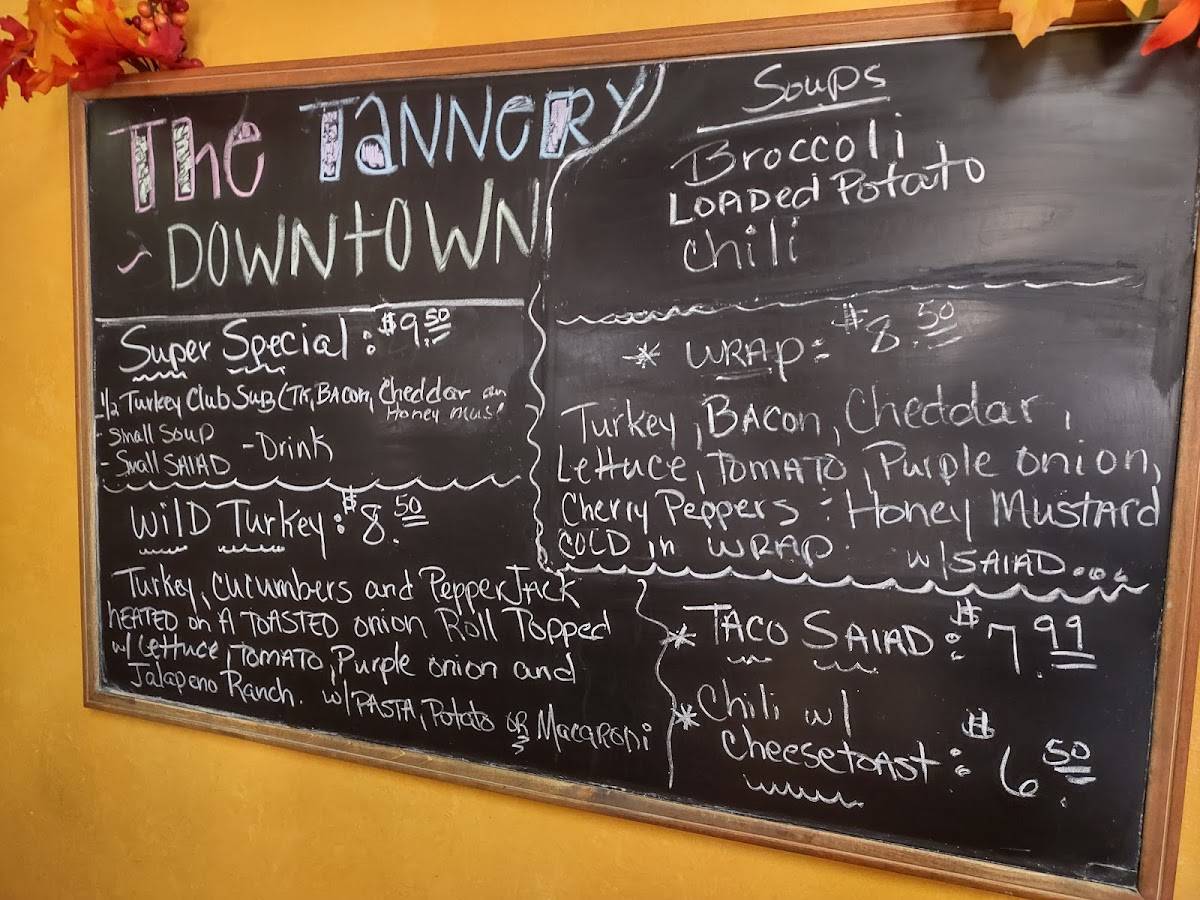 The Tannery
~ Downtown
Super Special: $9.50
- 1/2 Turkey Club Sub (TK, Bacon, Cheddar an
Honey Must
- Small Soup
- Small Salad
- Drink
Wild Turkey: $8.50
Turkey, cucumbers and PepperJack
heated on A Toasted onion Roll Topped
w/ Lettuce, Tomato, Purple onion and
Jalapeno Ranch. w/ Pasta, Potato or Macaroni
Soups
Broccoli
Loaded Potato
Chili
* Wrap: $8.50
Turkey, Bacon, Cheddar,
Lettuce, Tomato, Purple onion,
Cherry Peppers : Honey Mustard
Cold in wrap. w/ Salad....
* Taco Salad: $7.99
* Chili w/
Cheesetoast: $6.50